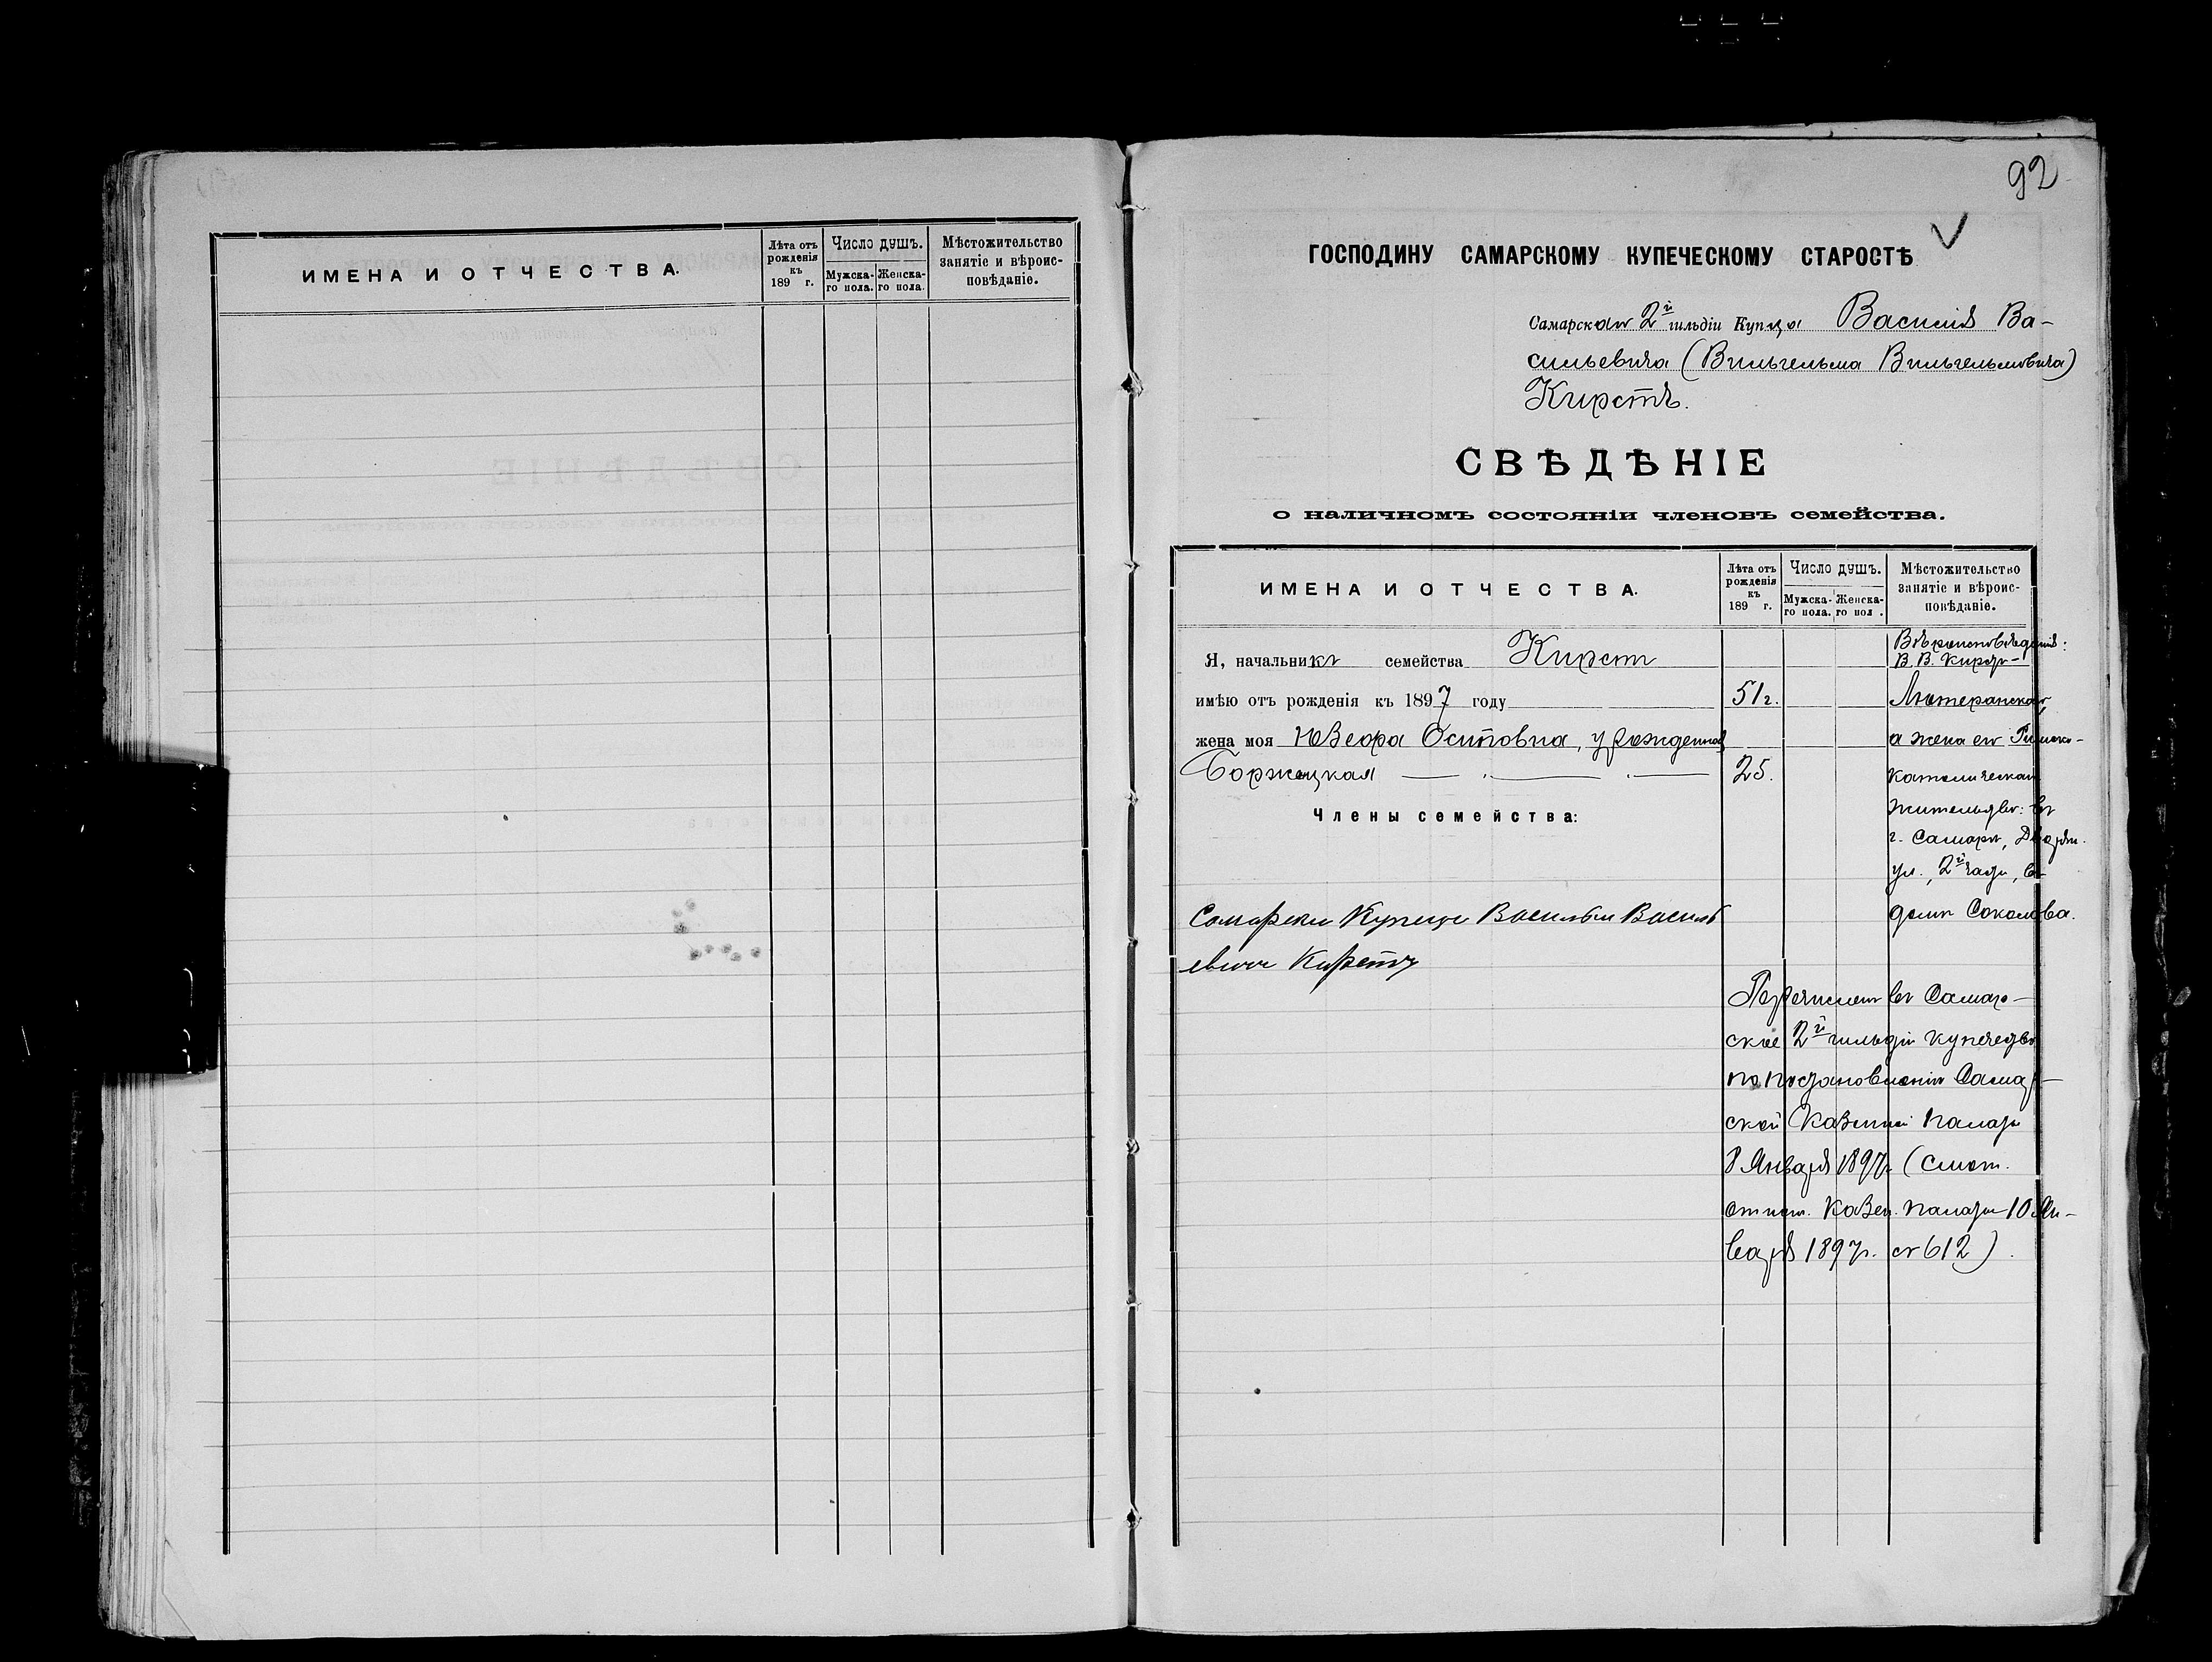 ИМЕНА И ОТЧЕСТВА.
Лѣта отъ рожденія къ 189 г.
Число душъ.
Мужска-го пола.
Женска-го пола.
Мѣстожительство занятіе и вѣроис-повѣданіе.
92
ГОСПОДИНУ САМАРСКОМУ КУПЕЧЕСКОМУ СТАРОСТѢ
Самарскаго 2й гильдіи Купца Василія Ва-
сильевича (Вильгельма Вильгельмовича)
Кирстъ.
СВѢДѢНІЕ
о наличномъ состояніи членовъ семейства.
ИМЕНА И ОТЧЕСТВА.
Лѣта отъ рожденія къ 189 г.
Число душъ.
Мужска-го пола.
Женска-го пол .
Мѣстожительство занятіе и вѣроис-повѣданіе.
Я, начальникъ семейства Кирст
имѣю отъ рожденія къ 1897 году 51 г.
жена моя Осиповна, урожденная
Боржецкая 25.
Члены семейства:
Вѣроисповѣданія:
В. В. Кирстъ -
Лютеранскаго,
а жена его Римско-
католическаго
Жительство: въ
г. Самарѣ, Дворян.
ул., 2й части, въ
домѣ Соколова.
Самарски Купецъ Василъи Василь
евичъ Кирстъ
Перечисленъ въ Самар-
ское 2й гильдіи купечество
по постановленію Самар-
ской Казенной палаты
8 Января 1897г. (смот.
отнош. Казен. палаты 10 Ян-
варя 1897г. № 612).